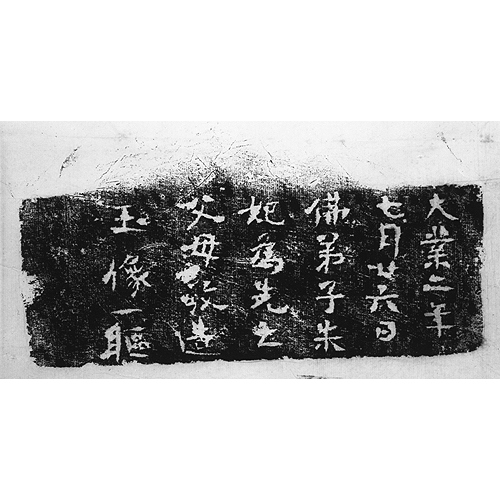 大業二年
七月廿六日
佛弟子朱
妃為先亡
父母敬造
玉像一軀